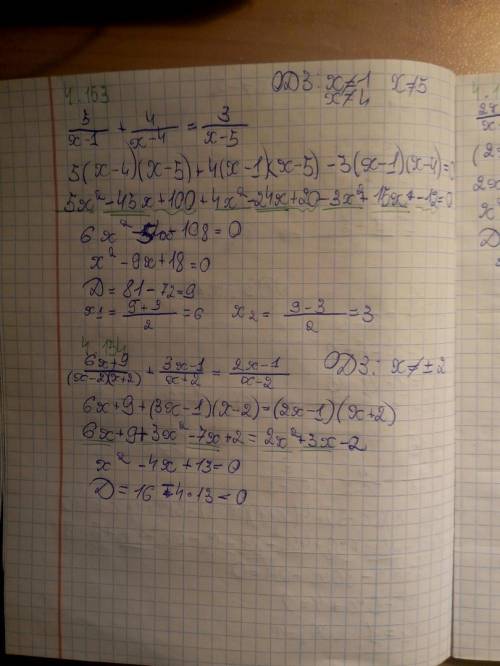 4.153
ОДЗ: x≠1 x≠5
x≠4
5/(x-1) + 4/(x-4) = 3/(x-5)
5(x-4)(x-5)+4(x-1)(x-5)-3(x-1)(x-4)=0
5x²-45x+100+4x²-24x+20-3x²+15x-12=0
6x² -108=0
x²-9x+18=0
D=81-72=9
x₁=(9+3)/2=6 x₂=(9-3)/2=3
4.154
(6x+9)/((x-2)(x+2)) + (3x-1)/(x+2) = (2x-1)/(x-2) ОДЗ: x≠±2
6x+9+(3x-1)(x-2)=(2x-1)(x+2)
6x+9+3x²-7x+2=2x²+3x-2
x²-4x+13=0
D=16-4·13=0